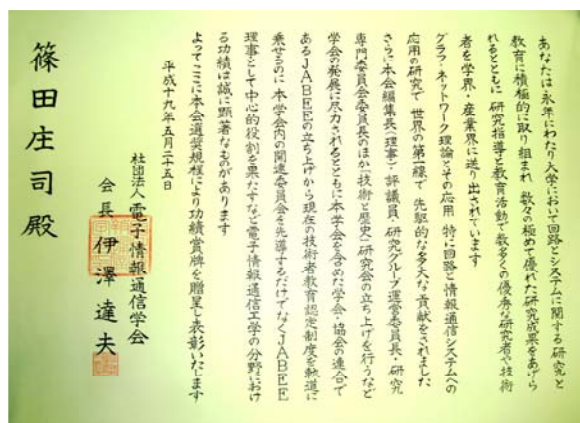 あなたは永年にわたり大学において回路とシステムに関する研究と
教育に積極的に取り組まれ 数々の極めて優れた研究成果をあげら
れるとともに 研究指導と教育活動で数多くの優秀な研究者や技術
者を学界・産業界に送り出されています
グラフ・ネットワーク理論とその応用 特に回路と情報通信システムへの
応用の研究で 世界の第一線で 先駆的な多大な貢献をされました
さらに本会編集長(理事) 評議員・研究グループ運営委員長・研究
専門委員会委員長のほか「技術と歴史」研究会の立ち上げを行うなど
学会の発展に尽力されるとともに本学会を含めた学会・協会の連合で
あるJABEEの立ち上げから現在の技術者教育認定制度を軌道に
乗せるのに 本学会内の関連委員会を先導するだけでなくJABEE
理事として中心的役割を果たすなど電子情報通信工学の分野におけ
る功績は誠に顕著なものがあります
よってここに本会選奨規程により功績賞牌を贈呈し表彰いたします
平成十九年五月二十五日
社団法人 電子情報通信学会
会長 伊澤達夫
篠田庄司殿